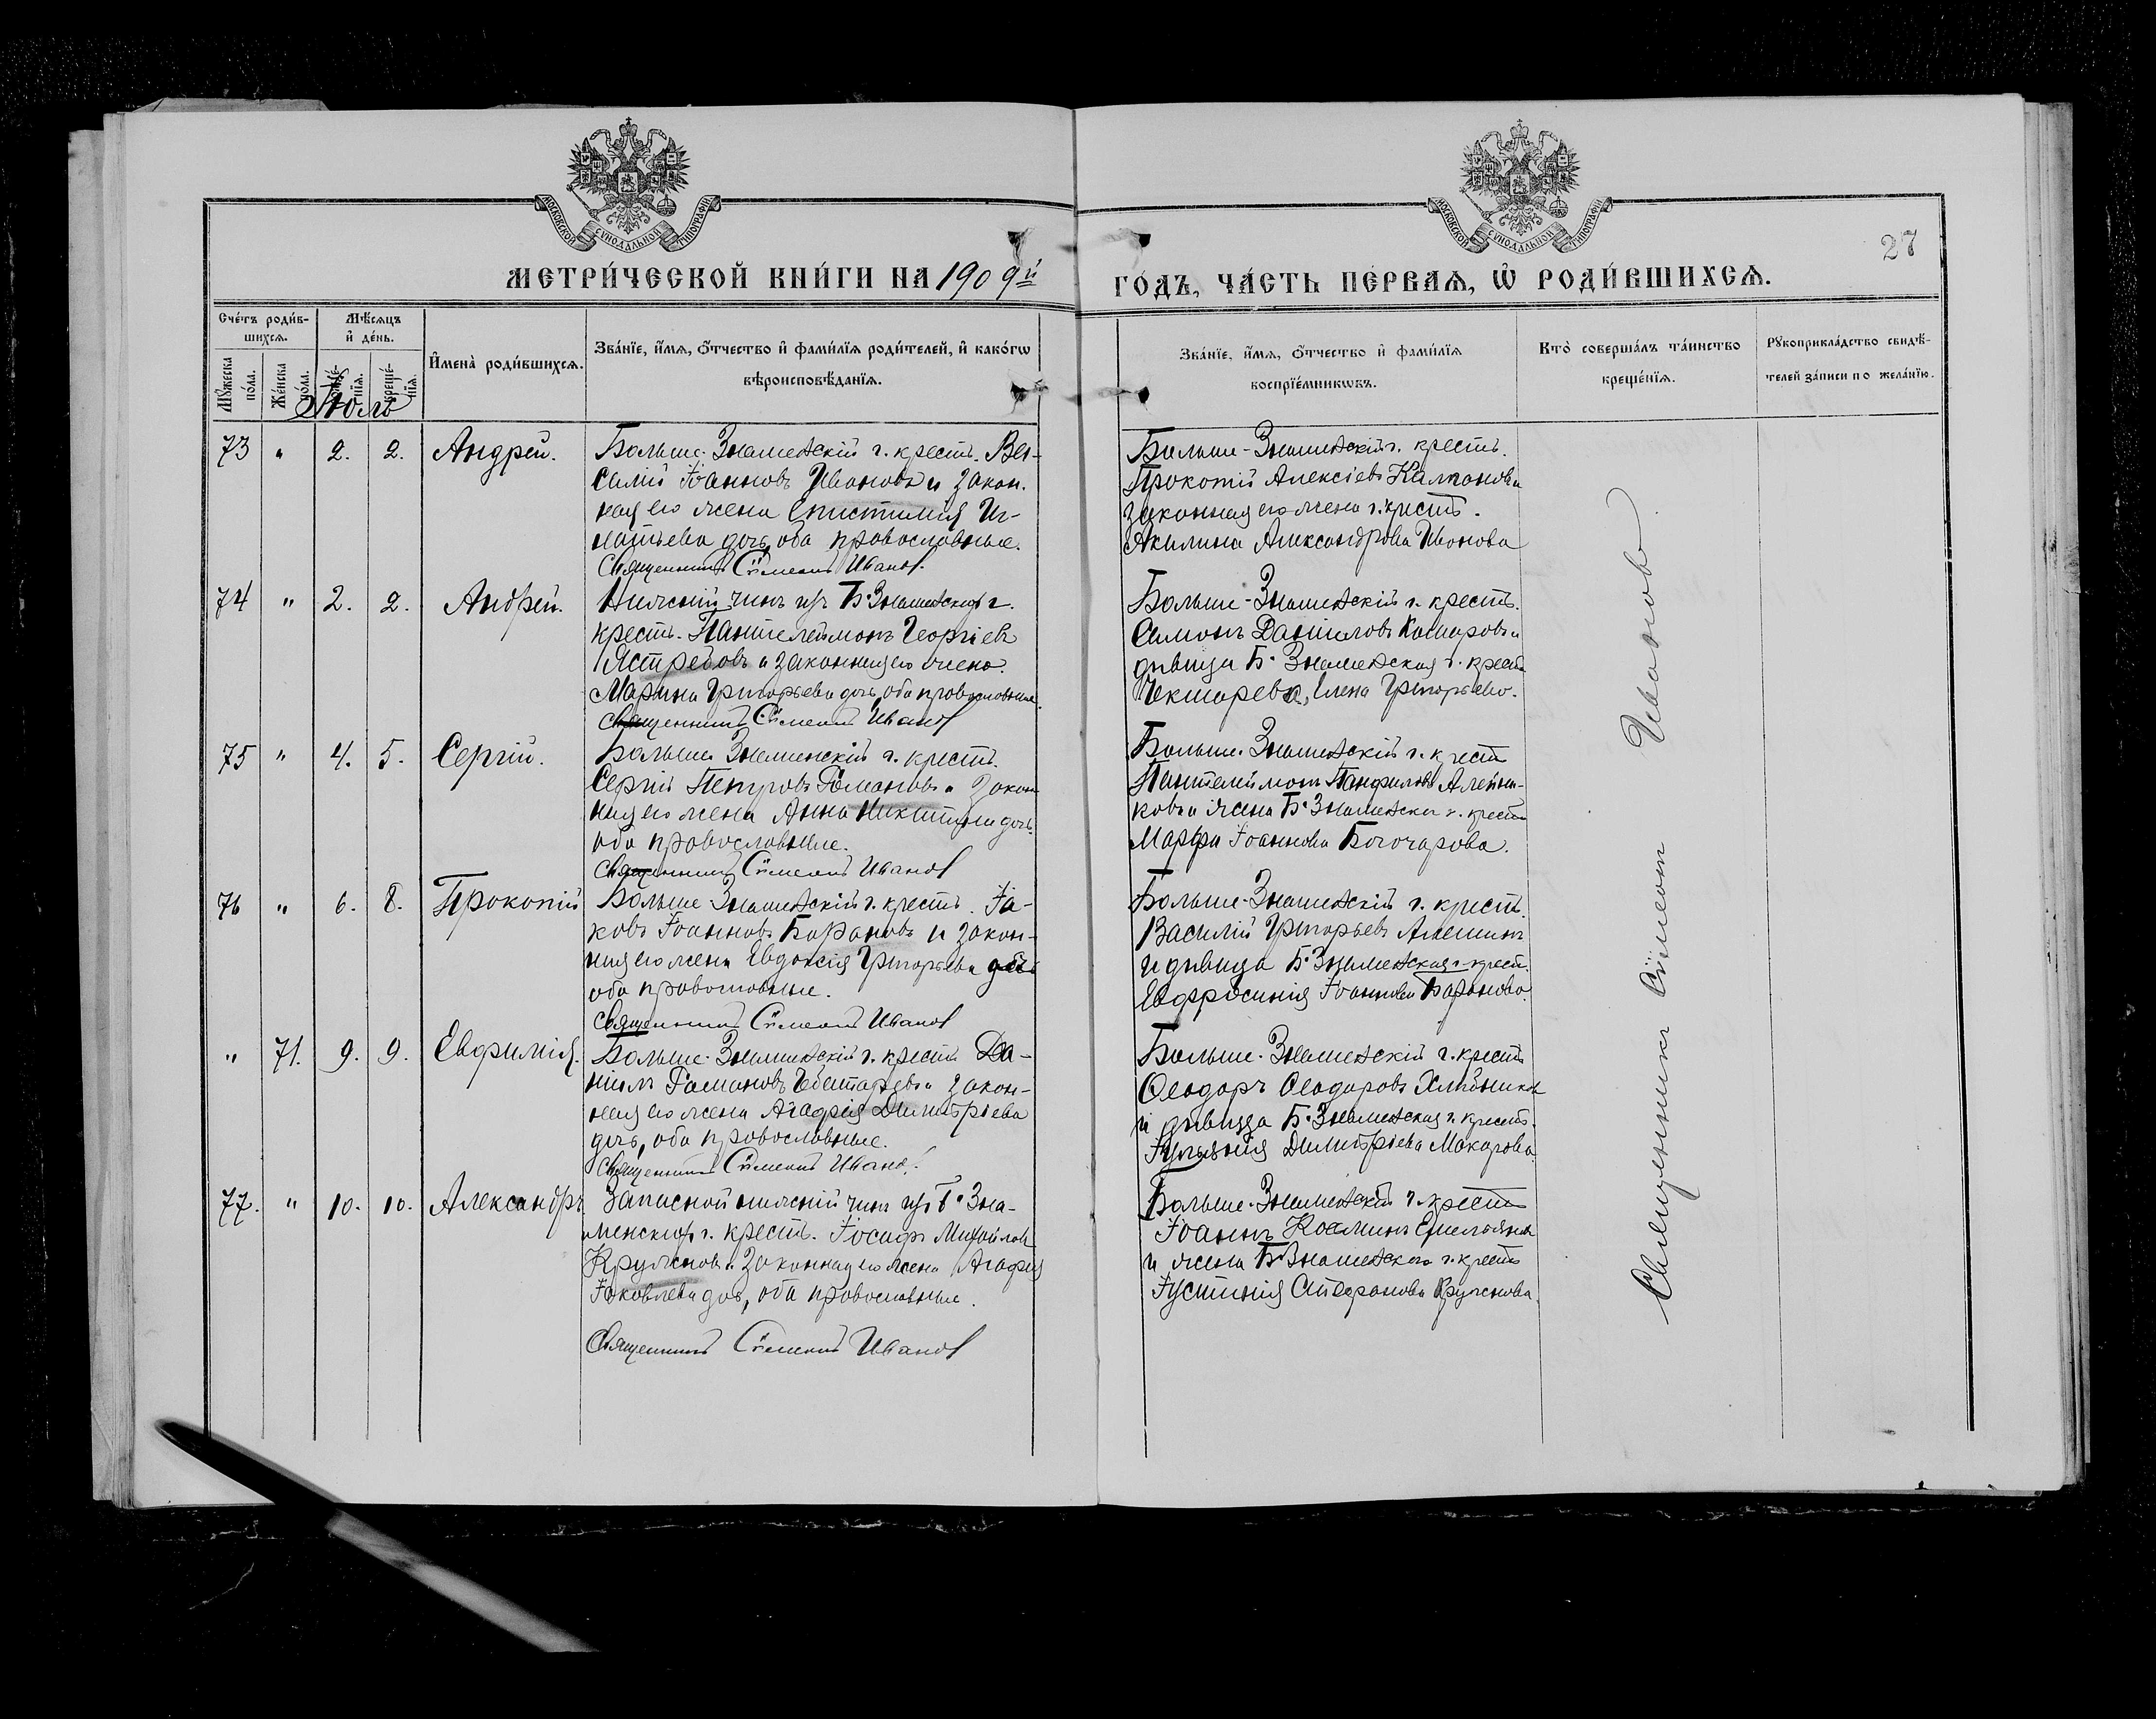 МОСКОВСКОЙ СѴНОДАЛЬНОЙ ТИПОГРАФІИ
МОСКОВСКОЙ СѴНОДАЛЬНОЙ ТИПОГРАФІИ
27
МЕТРИ́ЧЕСКОЙ КНИ́ГИ НА 1909й ГО́ДЪ, ЧА́СТЬ ПЕ́РВАѦ, Ѡ҆ РОДИ́ВШИХСѦ.
Сче́тъ роди́в-
шихсѧ.
Мѣ́сѧцъ
и҆ де́нь.
Мꙋ́жеска по́ла.
Же́нска по́ла.
креще́-
нїѧ.
И҆мена̀ роди́вшихсѧ.
Зва́нїе, и҆́мѧ, ѻ҆́тчество и҆ фами́лїѧ роди́телей, и҆ како́гѡ
вѣроисповѣ́данїѧ.
Зва́нїе, и҆́мѧ, ѻ҆́тчество и҆ фами́лїѧ
воспрїе́мникѡвъ.
Кто̀ соверша́лъ та́инство
креще́нїѧ.
Рꙋкоприкла́дство свидѣ́-
телей за́писи по жела́нїю.
Июль
73 " 2. 2. Андрей.
Больше-Знаменскій г. крест. Ва-
силій Іоанновъ Ивановъ и закон.
ная его жена Епистимія Иг-
натьева дочь, оба православные.
Священникъ Сѷмеонъ Иванов.
Больше-Знаменскій г. крест.
Прокопій Алексіевъ Калтановъ и
законная его жена г. крест.
Акилина Александрова Иванова
74 " 2. 2. Андрей.
Нижній чинъ изъ Б. Знаменских г.
крест. Пантелеймонъ Георгіевъ
Ястребовъ и законная его жена
Марина Григорьева дочь, оба православные.
Священникъ Сѷмеонъ Иванов
Больше-Знаменскій г. крест.
Симонъ Даниловъ Комаровъ и
дѣвица Б. Знаменская г. крест.
Чекмарева, Елена Григорьева.
75 " 4. 5. Сергій.
Больше Знаменскій г. крест.
Сергій Петровъ Романовъ и закон
ная его жена Анна Никитина дочь,
оба православные.
Священникъ Сѷмеонъ Иванов
Больше-Знаменскій г. крест
Пантелеймонъ Панфиловъ Алейни-
ковъ и жена Б. Знаменского г. крест
Марфа Іоаннова Богочарова.
76 " 6. 8. Прокопій
Больше Знаменскій г. крест. Іа-
ковъ Іоанновъ Барановъ и закон-
ная его жена Евдокія Григорьева дочь
оба православные.
Священникъ Сѷмеонъ Иванов
Больше-Знаменскій г. крест.
Василій Григорьевъ Алешинъ
и дѣвица Б. Знаменская г. крест.
Евфросинія Іоаннова Баранова.
" 71. 9. 9. Евфимія.
Больше-Знаменскій г. крест Да-
ніилъ Романовъ Чекмаревъ и закон-
ная его жена Агафія Димитріева
дочь, оба православные.
Священникъ Сѷмеонъ Иванов.
Больше-Знаменскій г. крест
Ѳеодоръ Ѳеодоровъ Хлѣбников
и дѣвица Б. Знаменская г. крест.
Іуліанія Димитріева Макарова.
77. " 10. 10. Александръ
Запасной нижній чинъ изъ Б. Зна-
менских г. крест. Іосифъ Михайлов
Кружновъ и законная его жена Агафія
Іаковлева дочь, оба православные.
Священникъ Сѷмеонъ Иванов
Больше-Знаменскій г. крест
Іоаннъ Космин Емельянов
и жена Б. Знаменского г. крест
Іустинія Кружнова.
Священникъ Сѷмеонъ Ивановъ